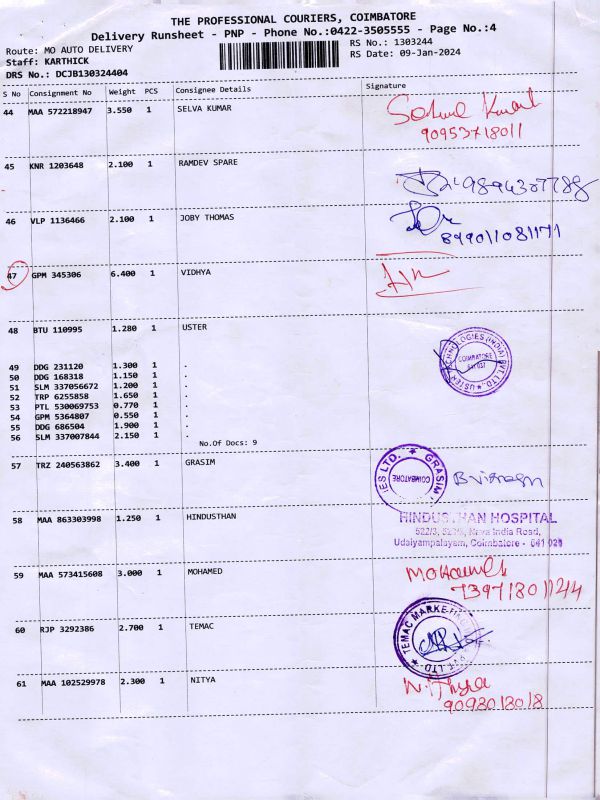 THE PROFESSIONAL COURIERS, COIMBATORE
Delivery Runsheet - PNP - Phone No.:0422-3505555 - Page No.:4
Route: MO AUTO DELIVERY
RS No.: 1303244
Staff: KARTHICK
RS Date: 09-Jan-2024
DRS No.: DCJB130324404
S No Consignment No Weight PCS Consignee Details Signature
44 MAA 572218947 3.550 1 SELVA KUMAR
Selva Kumar
90953718011
45 KNR 1203648 2.100 1 RAMDEV SPARE
9894307788
46 VLP 1136466 2.100 1 JOBY THOMAS
47 GPM 345306 6.400 1 VIDHYA
48 BTU 110995 1.280 1 USTER
USTER TECHNOLOGIES (INDIA) PVT. LTD.
COIMBATORE
641 037
49 DDG 231120 1.300 1 .
50 DDG 168318 1.150 1 .
51 SLM 337056672 1.200 1 .
52 TRP 6255858 1.650 1 .
53 PTL 530069753 0.770 1 .
54 GPM 5364807 0.550 1 .
55 DDG 686504 1.900 1 .
56 SLM 337007844 2.150 1 .
No.Of Docs: 9
57 TRZ 240563862 3.400 1 GRASIM
GRASIM
IES LTD.
COIMBATORE
58 MAA 863303998 1.250 1 HINDUSTHAN
HINDUSTHAN HOSPITAL
Nava India Road,
Udaiyampalayam, Coimbatore - 641 028
59 MAA 573415608 3.000 1 MOHAMED
60 RJP 3292386 2.700 1 TEMAC
TEMAC
PVT. LTD.
61 MAA 102529978 2.300 1 NITYA